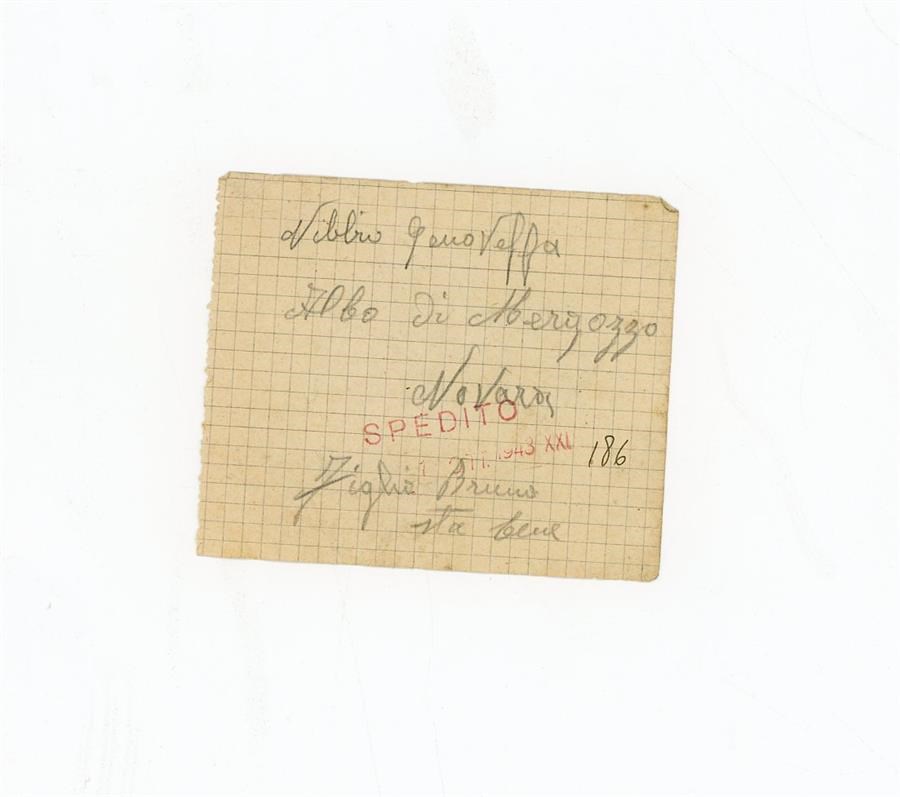 Nibbio Genoveffa
Albo di Mergozzo
Novara
SPEDITO
1943 XXI
186
Figlio Bruno
sta bene